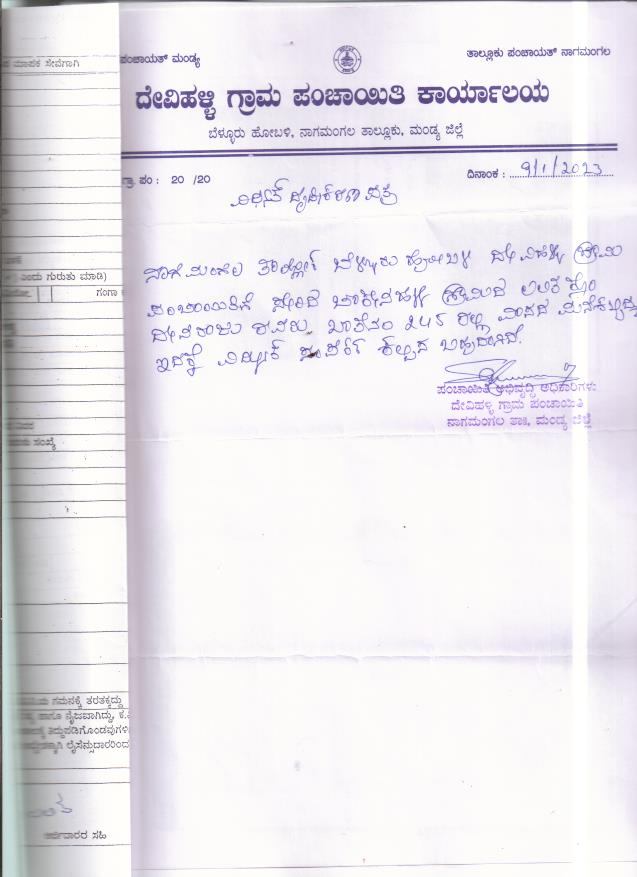 ಪಂಚಾಯತ್ ಮಂಡ್ಯ ತಾಲ್ಲೂಕು ಪಂಚಾಯತ್ ನಾಗಮಂಗಲ
ದೇವಿಹಳ್ಳಿ ಗ್ರಾಮ ಪಂಚಾಯಿತಿ ಕಾರ್ಯಾಲಯ
ಬೆಳ್ಳೂರು ಹೋಬಳಿ, ನಾಗಮಂಗಲ ತಾಲ್ಲೂಕು, ಮಂಡ್ಯ ಜಿಲ್ಲೆ
ಗ್ರಾ. ಪಂ : 20 /20 ದಿನಾಂಕ : 9/1/2023
ದೃಢೀಕರಣ ಪತ್ರ
ನಾಗಮಂಗಲ ತಾಲ್ಲೋಕ್ ಬೆಳ್ಳೂರು ಹೋಬಳಿ ದೇವಿಹಳ್ಳಿ ಗ್ರಾಮ
ಪಂಚಾಯಿತಿಗೆ ಸೇರಿದ ಗ್ರಾಮದ ಲಲಿತ ಕೋಂ
ದೇವರಾಜು ರವರು 245 ರಲ್ಲಿ
ಇದಕ್ಕೆ ವಿದ್ಯುತ್ ಸಂಪರ್ಕ ಕಲ್ಪಿಸ ಬಹುದಾಗಿದೆ.
ಪಂಚಾಯಿತಿ ಅಭಿವೃದ್ಧಿ ಅಧಿಕಾರಿಗಳು
ದೇವಿಹಳ್ಳಿ ಗ್ರಾಮ ಪಂಚಾಯಿತಿ
ನಾಗಮಂಗಲ ತಾ||, ಮಂಡ್ಯ ಜಿಲ್ಲೆ
ಮಾಪಕ ಸೇವೆಗಾಗಿ
ಎಂದು ಗುರುತು ಮಾಡಿ)
ಗಂಗಾ
ಸಂಖ್ಯೆ
ಗಮನಕ್ಕೆ ತರತಕ್ಕದ್ದು
ಹಾಗೂ ನೈಜವಾಗಿದ್ದು,
ತಿದ್ದುಪಡಿಗೊಂಡವುಗಳ
ಲೈಸೆನ್ಸುದಾರರಿಂದ
ಅರ್ಜಿದಾರರ ಸಹಿ